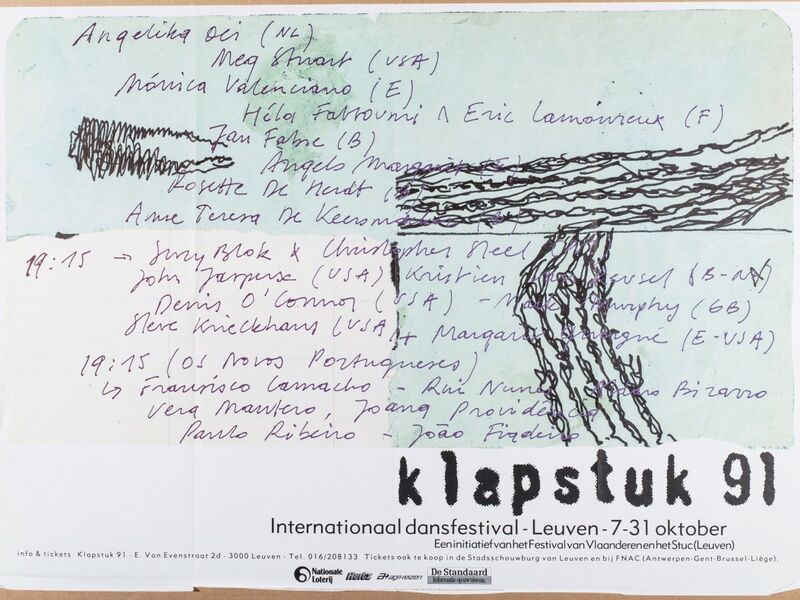 Angelika Oei (NL)
Meg Stuart (USA)
Mónica Valenciano (E)
Héla Fattoumi & Eric Lamoureux (F)
Jan Fabre (B)
Àngels Margarit (E)
Rosette De Herdt
Anne Teresa De Keersmaeker
19:15 → Suzy Blok & Christopher Steel
John Jasperse (USA) Kristien (B-NL)
Denis O'Connor (USA) - Mark Murphy (GB)
Steve Krieckhaus (USA) + Margarita Guergué (E-USA)
19:15 (Os Novos Portugueses)
↳ Francisco Camacho - Rui Nunes Bizarro
Vera Mantero, Joana Providência
Paulo Ribeiro - João Fiadeiro
klapstuk 91
Internationaal dansfestival - Leuven - 7-31 oktober
Een initiatief van het Festival van Vlaanderen en het Stuc (Leuven)
info & tickets Klapstuk 91 - E. Van Evenstraat 2d - 3000 Leuven - Tel. 016/208133 Tickets ook te koop in de Stadsschouwburg van Leuven en bij FNAC (Antwerpen-Gent-Brussel-Liège).
Nationale Loterij
De Standaard
Informatie op uw niveau.